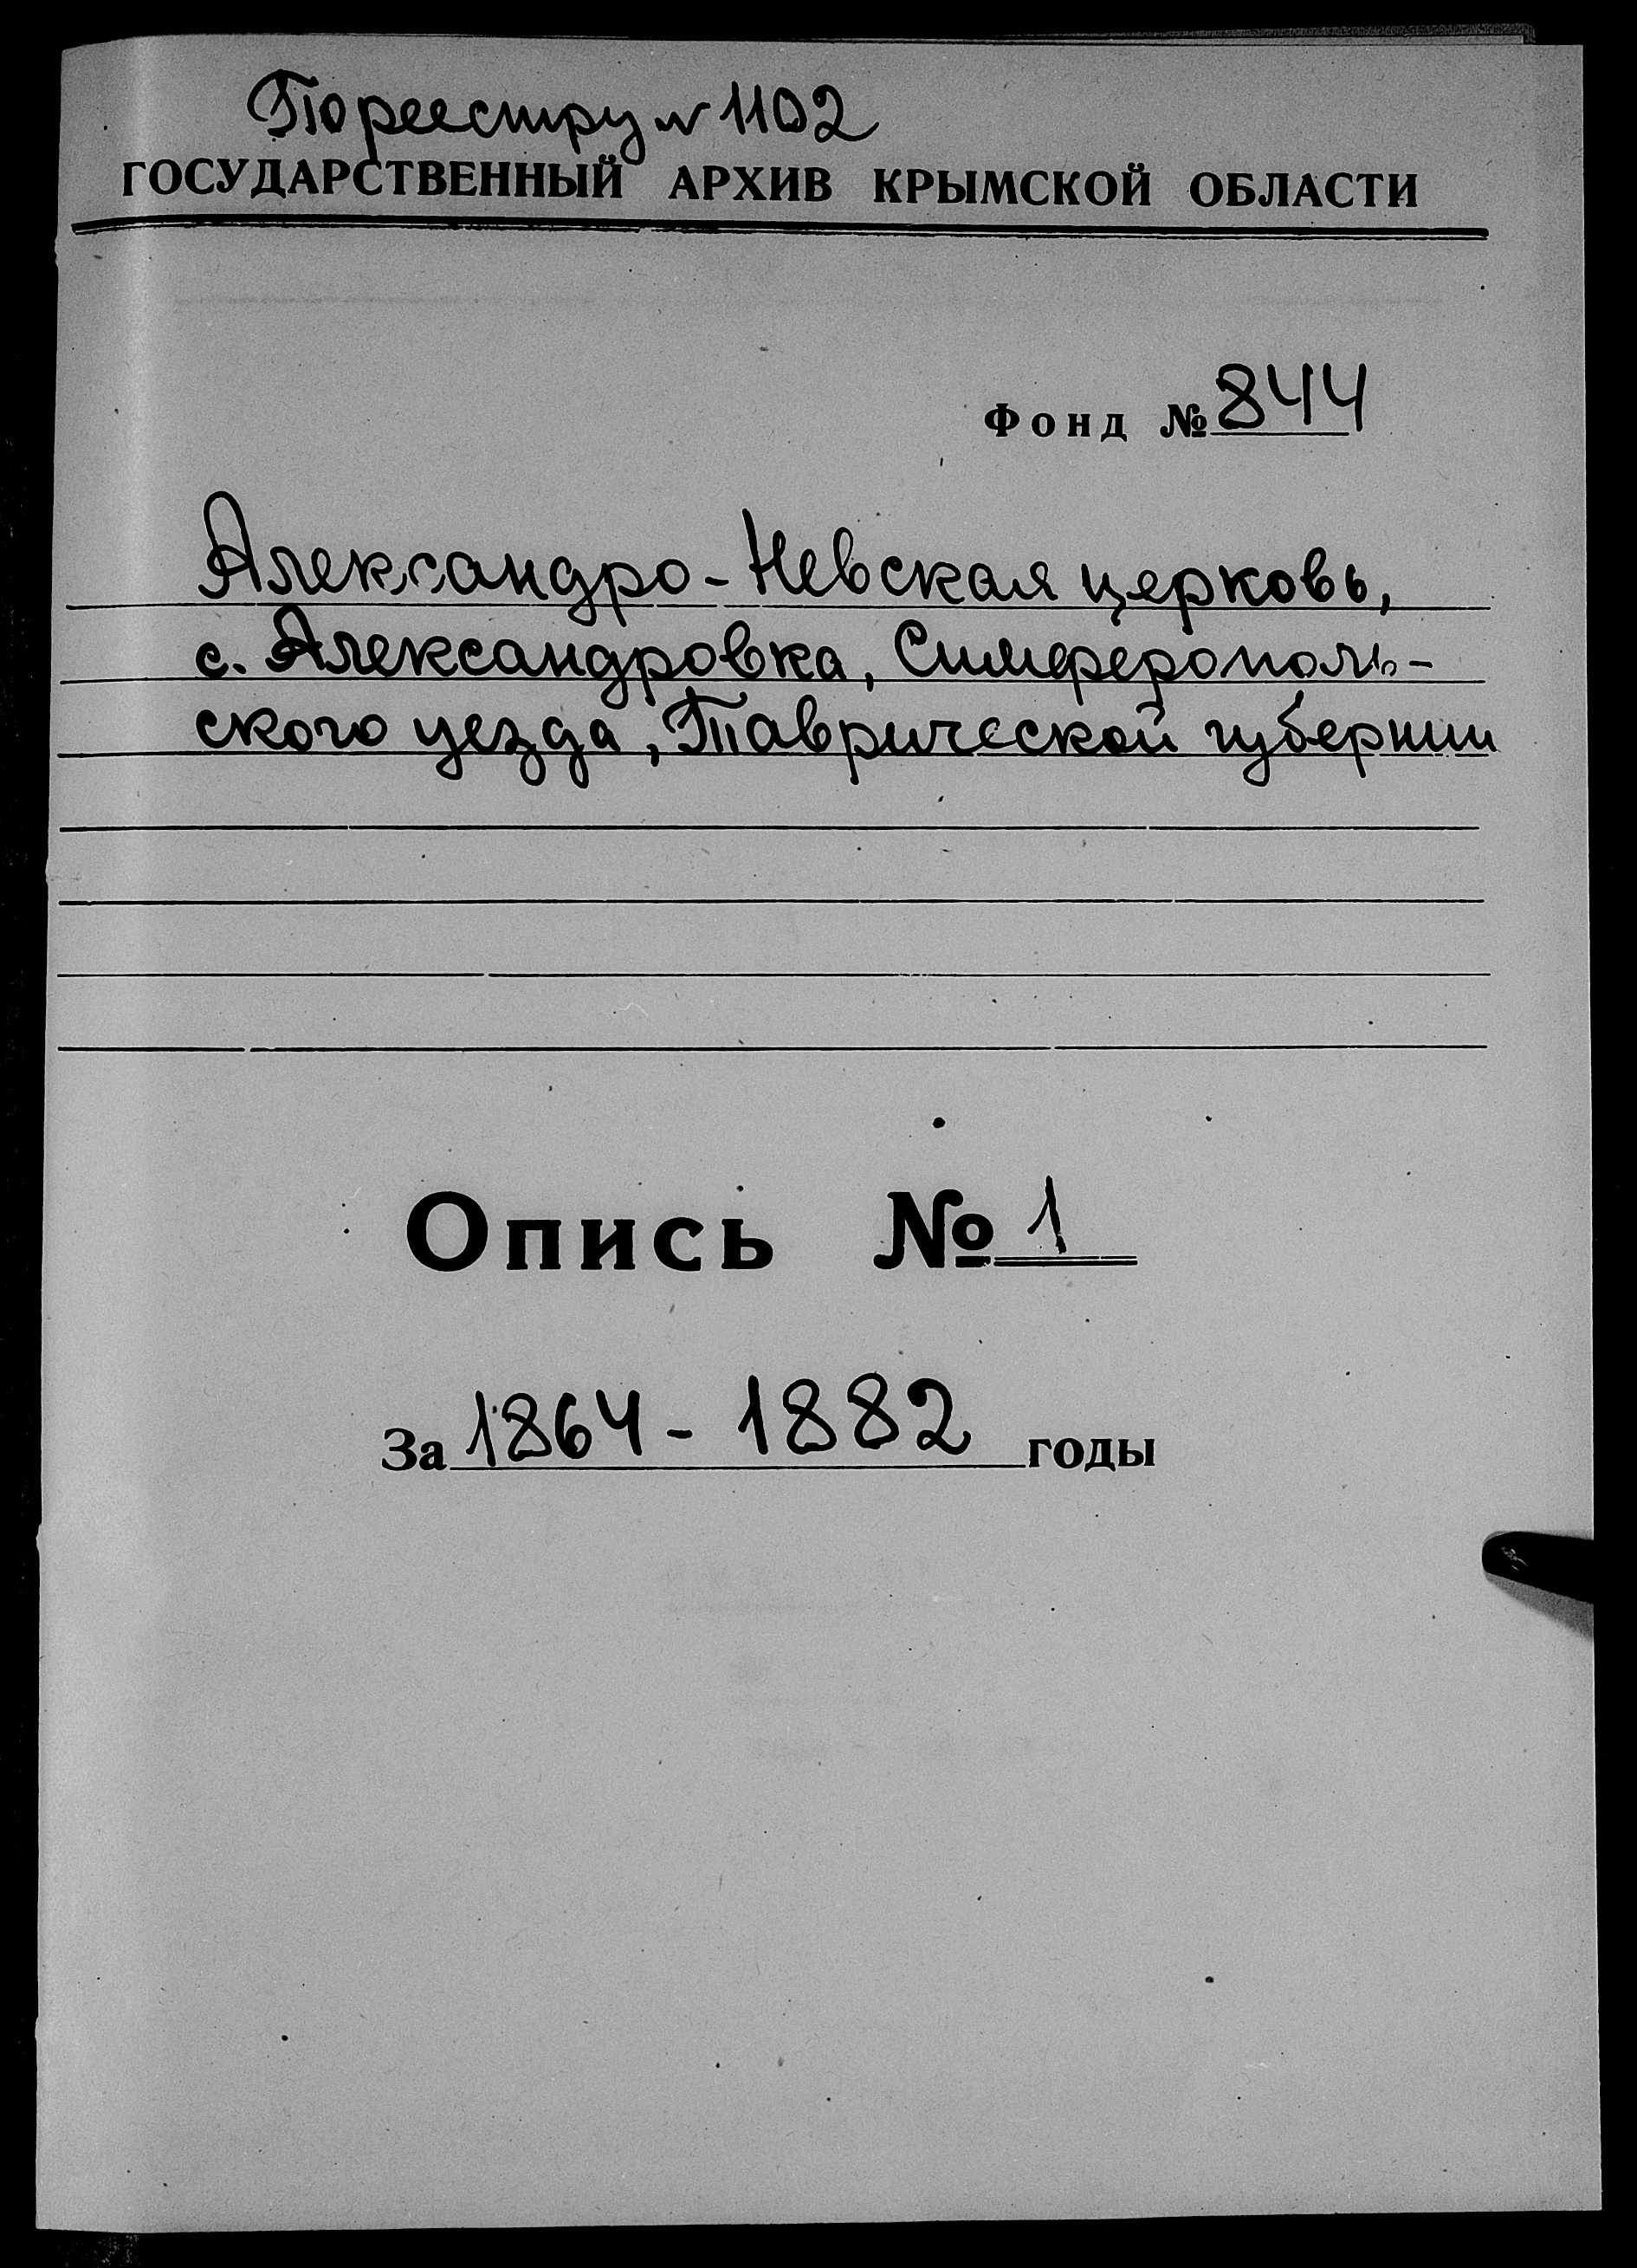 По реестру № 1102
ГОСУДАРСТВЕННЫЙ АРХИВ КРЫМСКОЙ ОБЛАСТИ
Фонд № 844
Александро-Невская церковь,
с. Александровка, Симферополь-
ского уезда, Таврической губернии
Опись № 1
За 1864 - 1882 годы